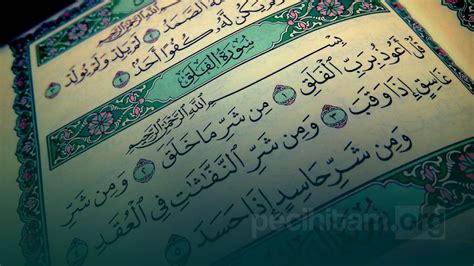 ٱلصَّمَدُ ٢ لَمْ يَلِدْ وَلَمْ يُولَدْ ٣
يَكُن لَّهُۥ كُفُوًا أَحَدٌۢ ٤
سُورَةُ الفَلَقِ
بِسْمِ ٱللَّهِ ٱلرَّحْمَٰنِ ٱلرَّحِيمِ
قُلْ أَعُوذُ بِرَبِّ ٱلْفَلَقِ ١ مِن شَرِّ مَا خَلَقَ ٢ وَمِن شَرِّ
غَاسِقٍ إِذَا وَقَبَ ٣ وَمِن شَرِّ ٱلنَّفَّٰثَٰتِ فِى ٱلْعُقَدِ ٤
وَمِن شَرِّ حَاسِدٍ إِذَا حَسَدَ ٥
pecihitam.org